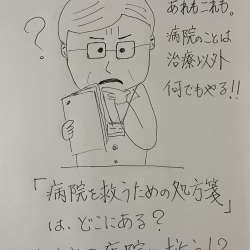 あれもこれも。
病院のことは
治療以外
何でもやる!!
?
「病院を救うための処方箋」
は、どこにある?